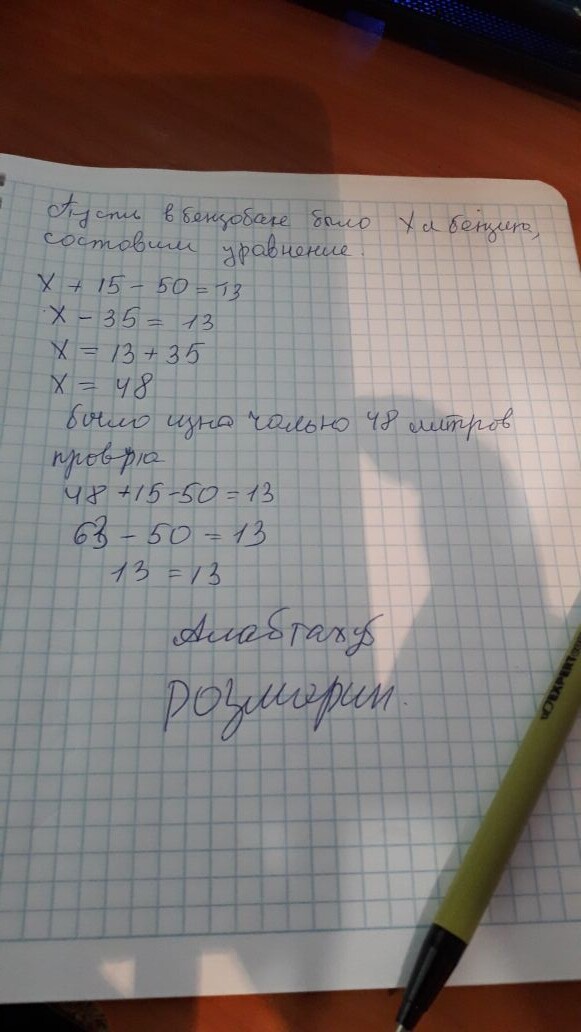 Пусть в бензобаке было X л бензина,
составим уравнение.
X + 15 - 50 = 13
X - 35 = 13
X = 13 + 35
X = 48
было изначально 48 литров
проврю
48 + 15 - 50 = 13
63 - 50 = 13
13 = 13
Алабтахуб
розмарин.
EXPERT